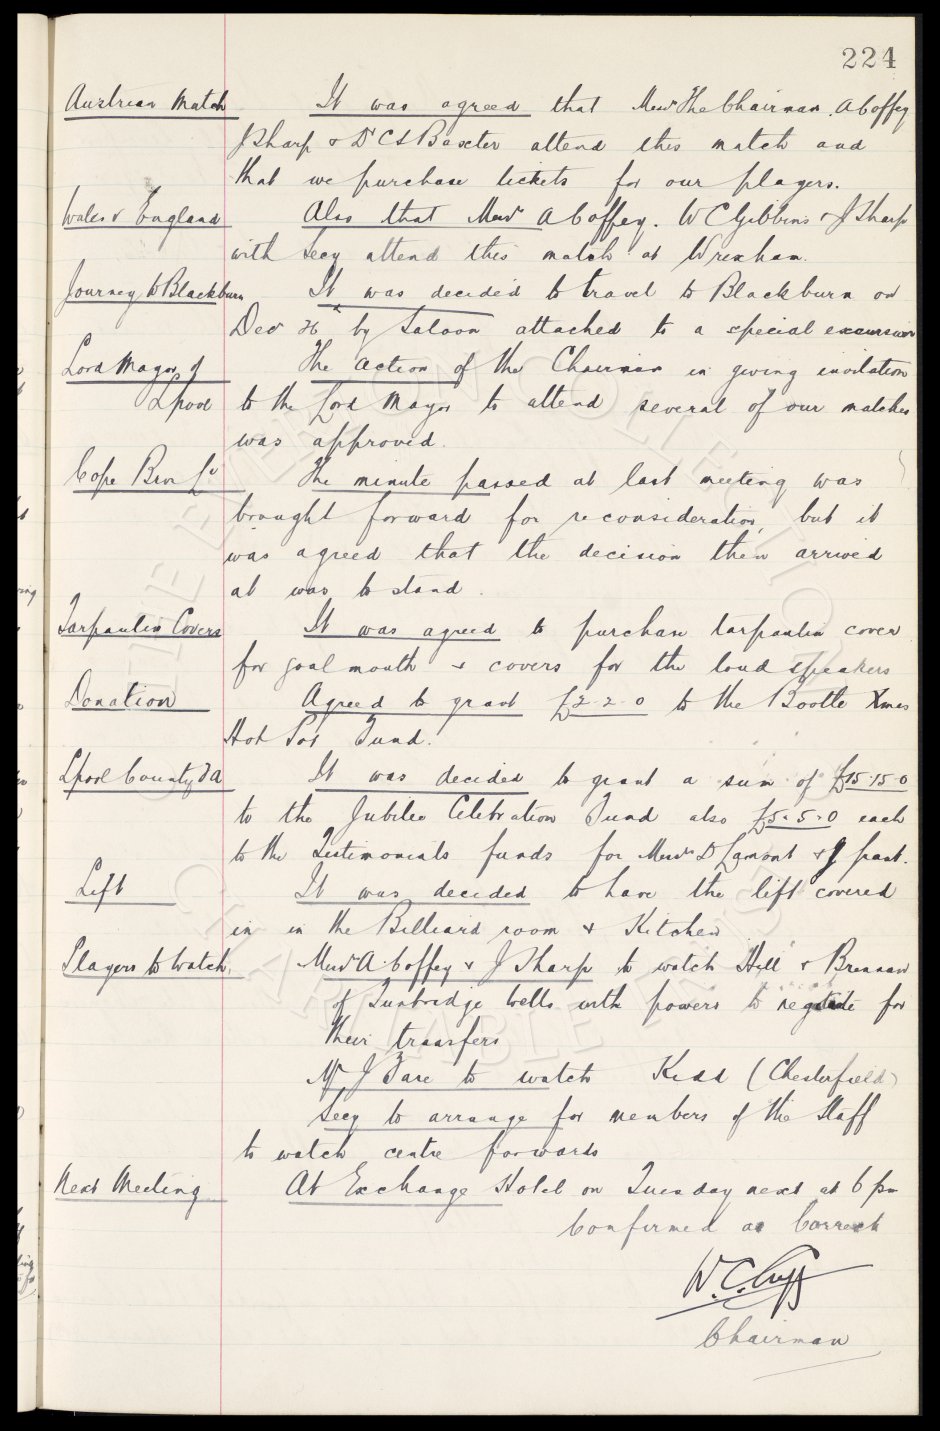 224
Austrian Match It was agreed that Messrs The Chairman, A Coffey
J Sharp & Dr C S Baxter attend this match and
that we purchase tickets for our players.
Wales v England Also that Messrs A Coffey. W C Gibbins & J Sharp
with Secy attend this match at Wrexham.
Journey to Blackburn It was decided to travel to Blackburn on
Dec 26 by Saloon attached to a special excursion
Lord Mayor of The action of the Chairman in giving invitation
Lpool to the Lord Mayor to attend several of our matches
was approved.
Cope Bros Ld The minute passed at last meeting was
brought forward for reconsideration, but it
was agreed that the decision then arrived
at was to stand.
Tarpaulin Covers It was agreed to purchase tarpaulin cover
for goal mouth & covers for the loud speakers
Donation Agreed to grant £2-2-0 to the Bootle Xmas
Hot Pot Fund.
Lpool County FA It was decided to grant a sum of £15-15-0
to the Jubilee Celebration Fund also £5-5-0 each
to the Testimonials funds for Messrs D Lamont & J
Lift It was decided to have the lift covered
in in the Billiard room & Kitchen
Players to Watch Messrs A. Coffey & J Sharp to watch Hill & Brennan
of Tunbridge Wells with powers to negotiate for
their transfers
Mr J Fare to watch Kidd (Chesterfield)
Secy to arrange for members of the Staff
to watch centre forwards
Next Meeting At Exchange Hotel on Tuesday next at 6 pm
Confirmed as Correct
W. C. Cuff
Chairman
THE EVERTON COLLECTION
CHARITABLE TRUST